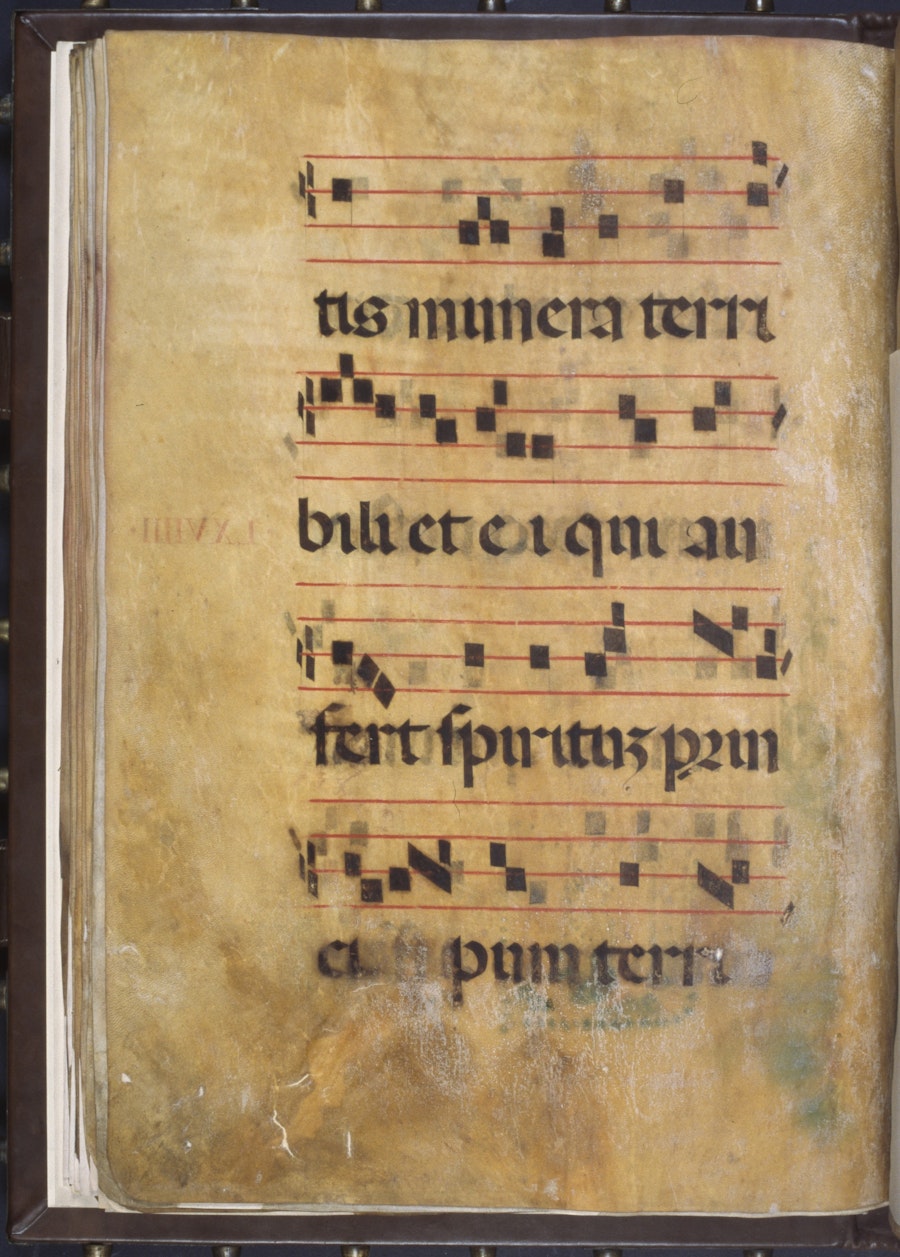 tis munera terri
bili et e i qui au
fert spirituz prin
ci pum terri